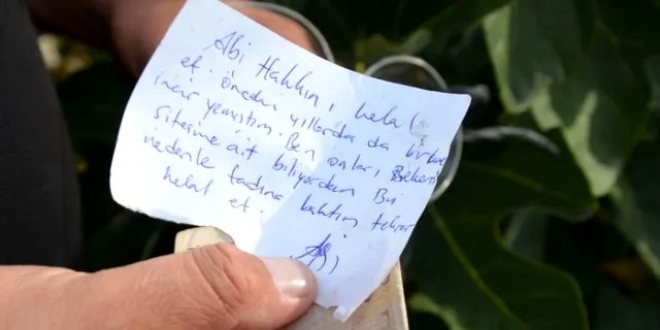 Abi Hakkını helal
et. Önceki yıllarda da birkaç
incir yemiştim. Ben onları, Bekem
sitesine ait biliyordum Bu
nedenle tadına baktım tekrar
helal et.